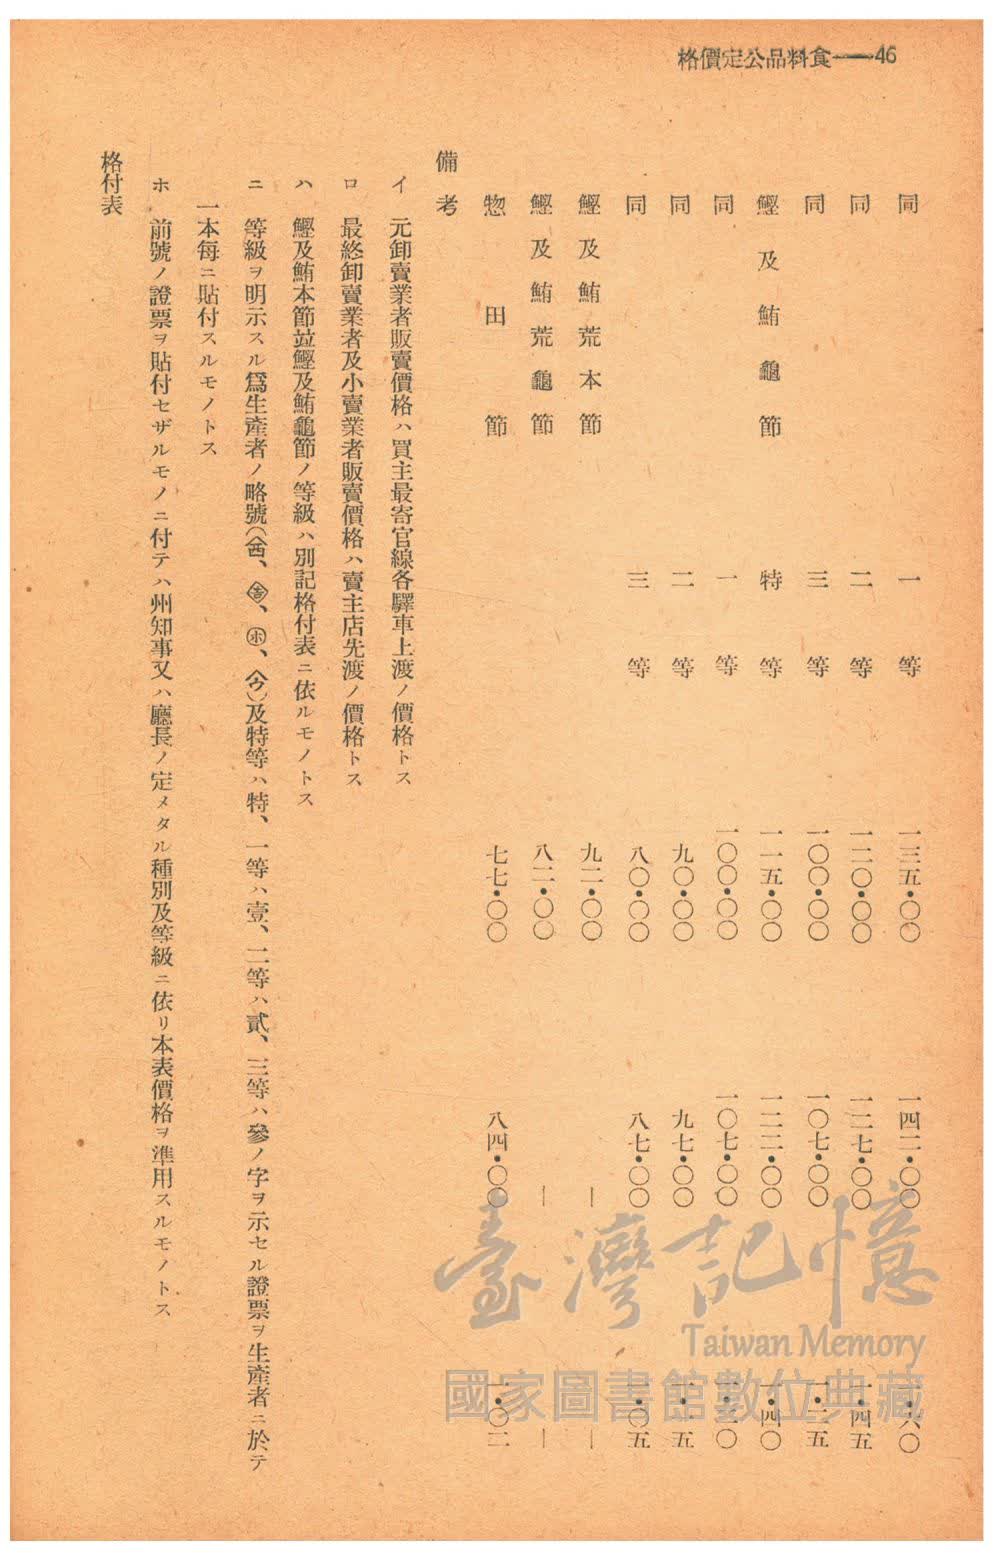 格價定公品料食——46
同 一等 一三五・〇〇 一四二・〇〇 一・六〇
同 二等 一二〇・〇〇 一二七・〇〇 一・四五
同 三等 一〇〇・〇〇 一〇七・〇〇 一・二五
鰹及鮪龜節 特等 一一五・〇〇 一二二・〇〇 一・四〇
同 一等 一〇〇・〇〇 一〇七・〇〇 一・二〇
同 二等 九〇・〇〇 九七・〇〇 一・一五
同 三等 八〇・〇〇 八七・〇〇 一・〇五
鰹及鮪荒本節 九二・〇〇 — —
鰹及鮪荒龜節 八二・〇〇 — —
惣田節 七七・〇〇 八四・〇〇 一・〇二
備考
イ 元卸賣業者販賣價格ハ買主最寄官線各驛車上渡ノ價格トス
ロ 最終卸賣業者及小賣業者販賣價格ハ賣主店先渡ノ價格トス
ハ 鰹及鮪本節竝鰹及鮪龜節ノ等級ハ別記格付表ニ依ルモノトス
ニ 等級ヲ明示スル爲生產者ノ略號(、、㋭、)及特等ハ特、一等ハ壹、二等ハ貳、三等ハ參ノ字ヲ示セル證票ヲ生產者ニ於テ
一本每ニ貼付スルモノトス
ホ 前號ノ證票ヲ貼付セザルモノニ付テハ州知事又ハ廳長ノ定メタル種別及等級ニ依リ本表價格ヲ準用スルモノトス
格付表
臺灣記憶
Taiwan Memory
國家圖書館數位典藏